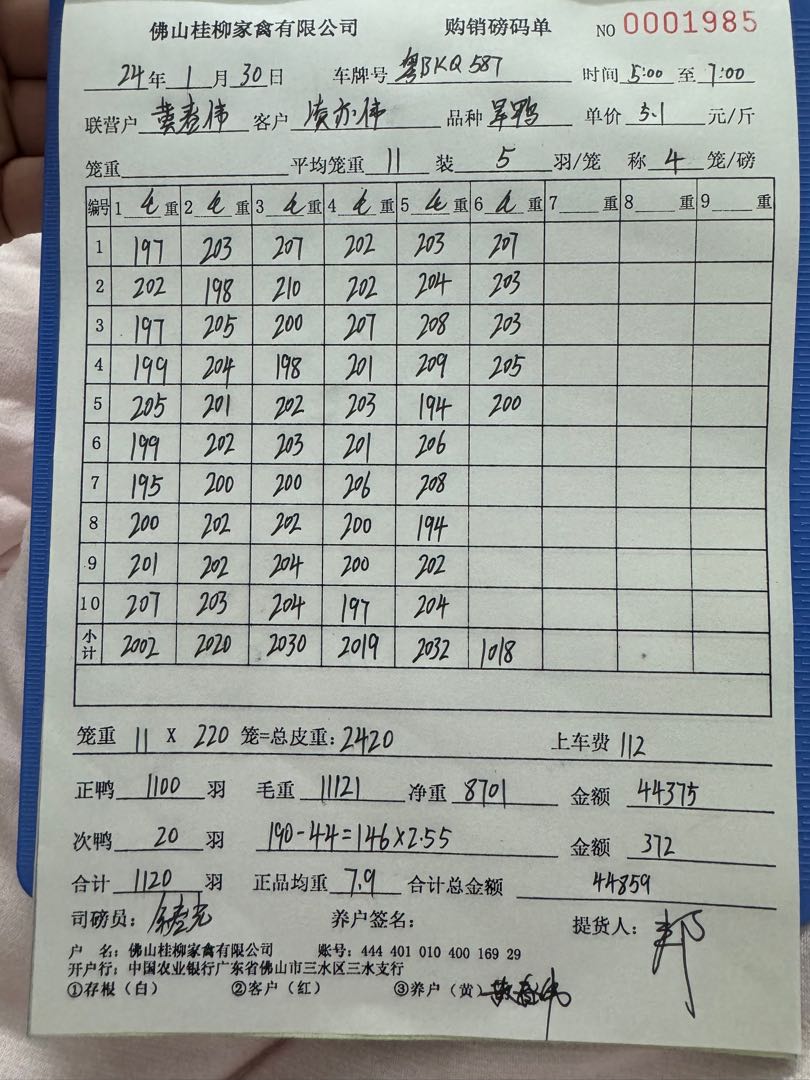 佛山桂柳家禽有限公司 购销磅码单 NO 0001985
24年 1月 30日 车牌号 粤BKQ587 时间 5:00 至 7:00
联营户 黄 伟 客户 伟 品种 旱鸭 单价 5.1 元/斤
笼重 平均笼重 11 装 5 羽/笼 称 4 笼/磅
编号 1 毛 重 2 毛 重 3 毛 重 4 毛 重 5 毛 重 6 毛 重 7 重 8 重 9 重
1 197 203 207 202 203 207
2 202 198 210 202 204 203
3 197 205 200 207 208 203
4 199 204 198 201 209 205
5 205 201 202 203 194 200
6 199 202 203 201 206
7 195 200 200 206 208
8 200 202 202 200 194
9 201 202 204 200 202
10 207 203 204 197 204
小计 2002 2020 2030 2019 2032 1018
笼重 11 X 220 笼=总皮重:2420 上车费 112
正鸭 1100 羽 毛重 11121 净重 8701 金额 44375
次鸭 20 羽 190-44=146×2.55 金额 372
合计 1120 羽 正品均重 7.9 合计总金额 44859
司磅员: 养户签名: 提货人: 邦
户 名: 佛山桂柳家禽有限公司 账号: 444 401 010 400 169 29
开户行: 中国农业银行广东省佛山市三水区三水支行
①存根(白) ②客户(红) ③养户(黄) 黄 伟